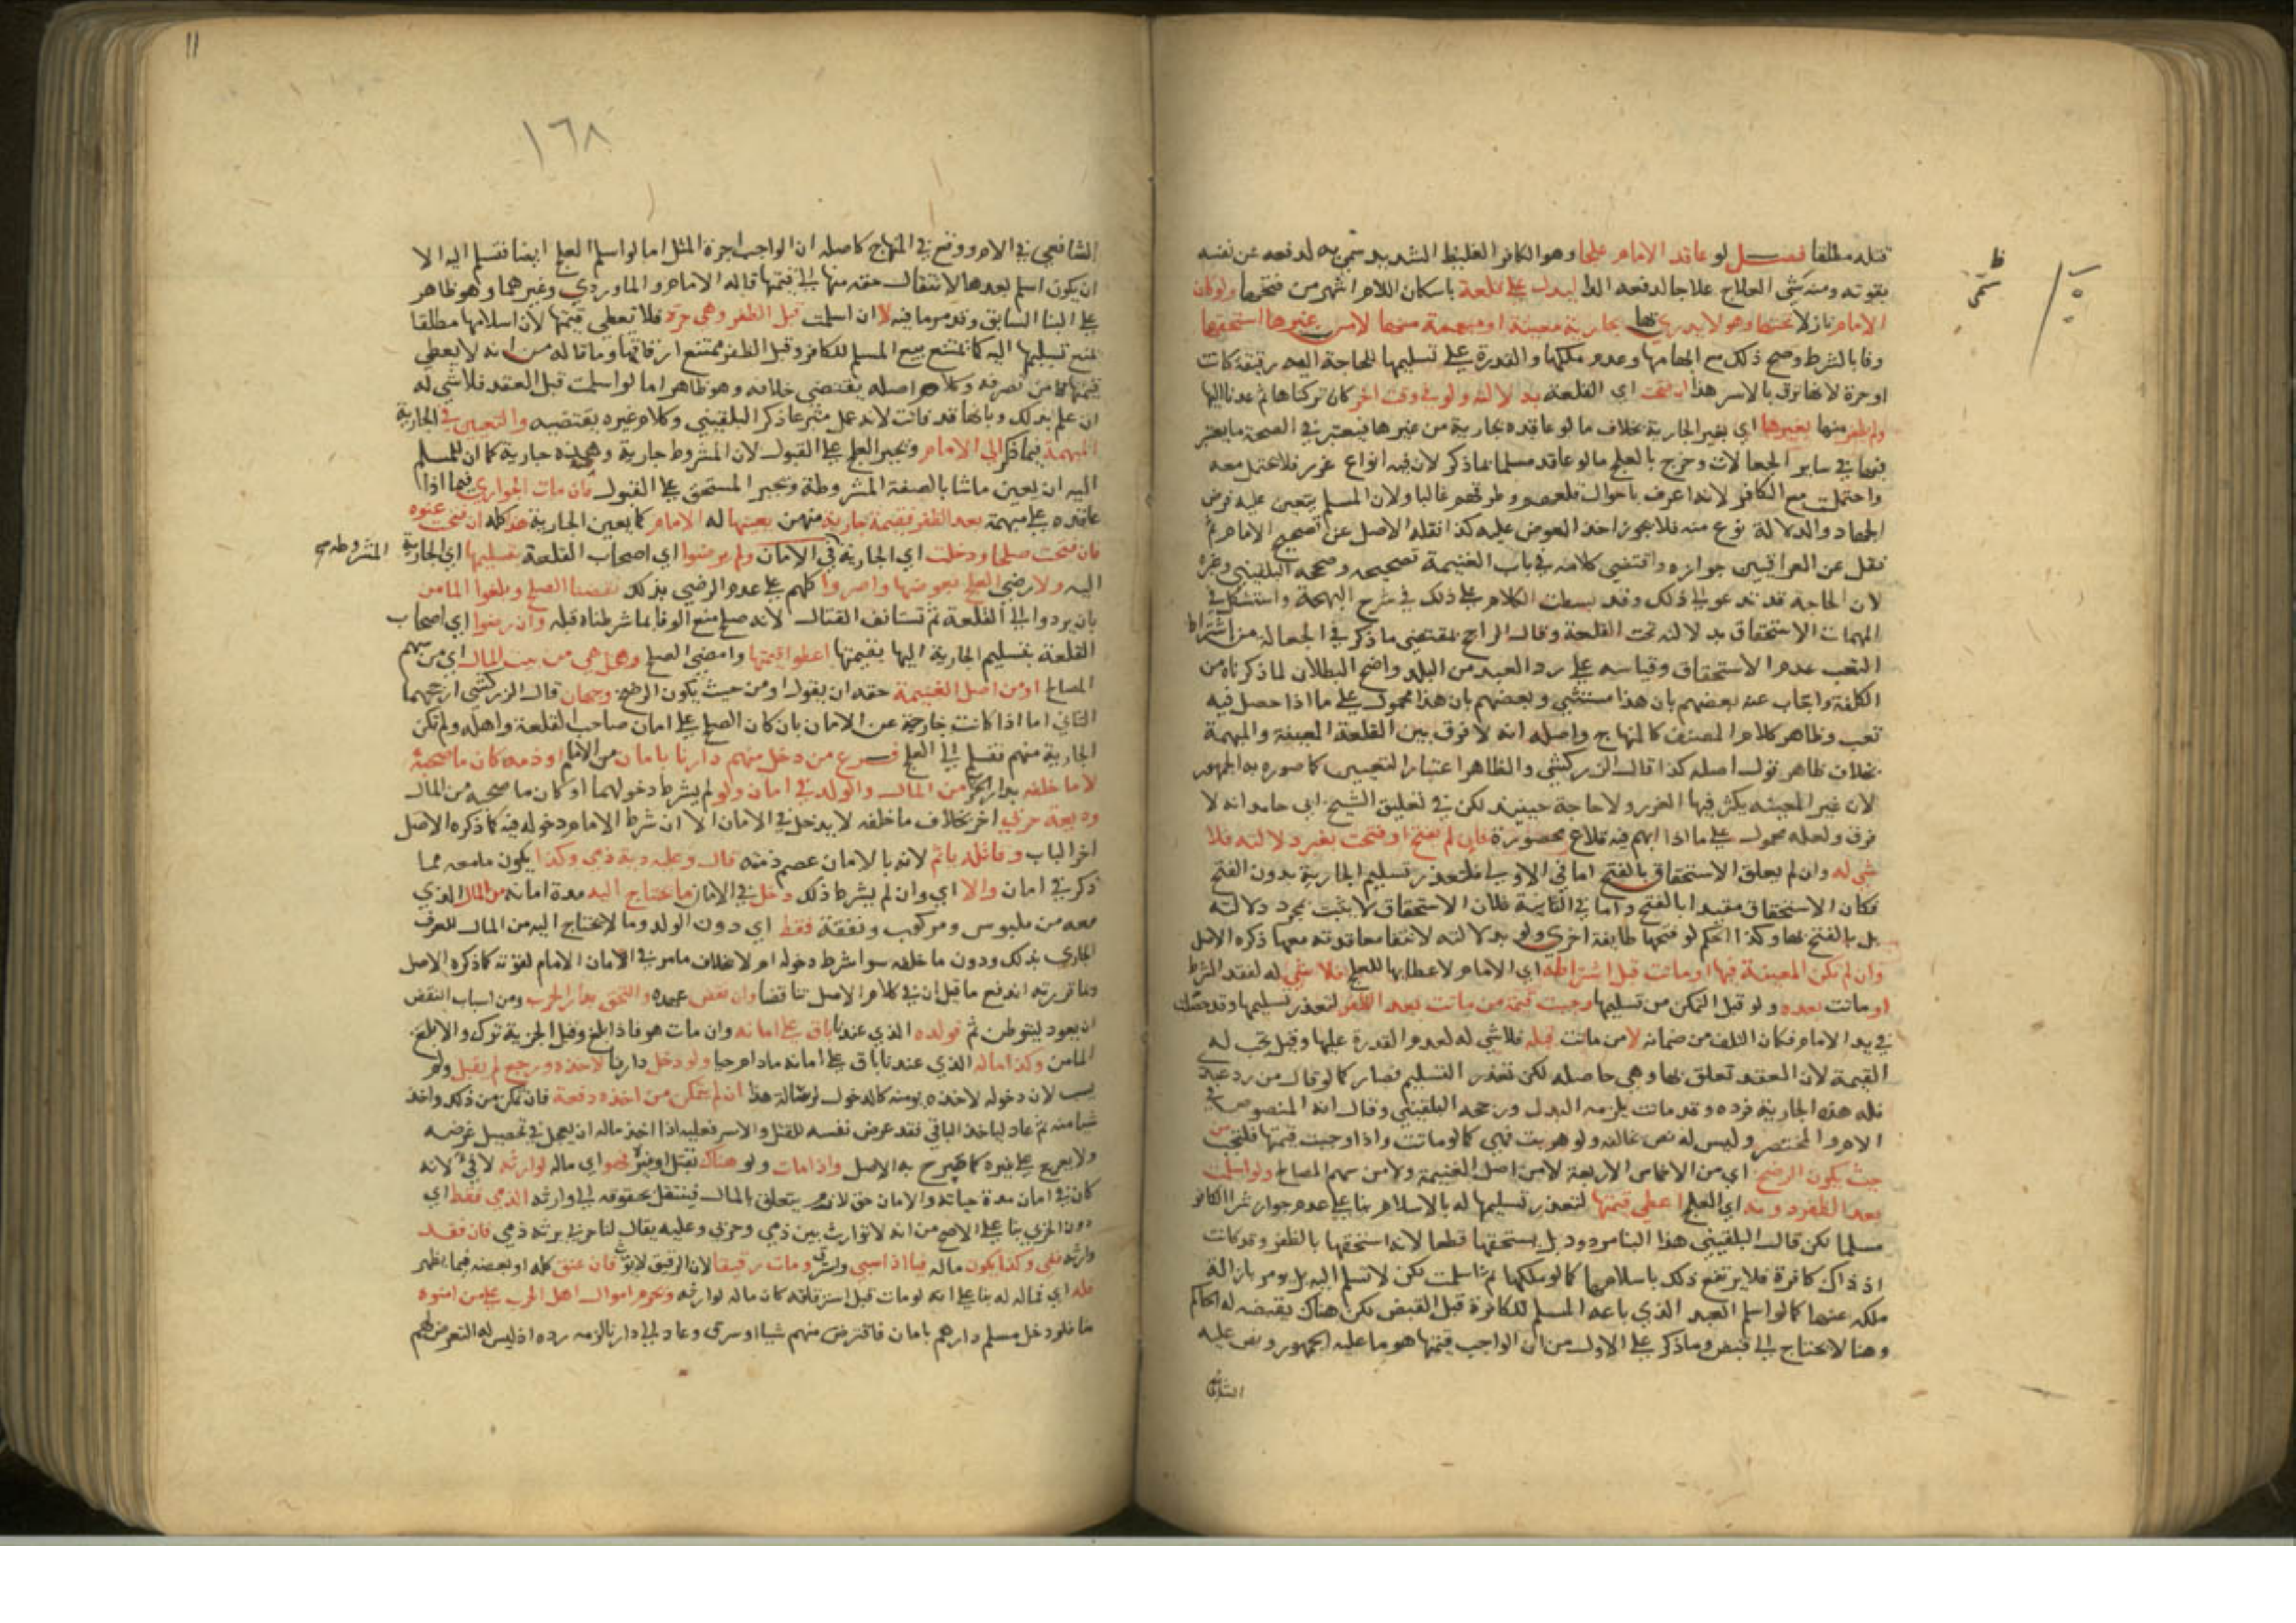 قتله مطلقا فصل لو عاقد الامام علجا وهو الكافر الغليظ الشديد سمي به لدفعه عن نفسه
بقوته ومنه سمي العلاج علاجا لدفعه الدا ليدل على قلعة باسكان اللام اشهر من فتحها ولو كان
الامام نازلا تحتها وهو لا يدري بها بجارية معينة او مبهمة منها لا من غيرها استحقها
وفا بالشرط وصح ذلك مع ابهامها وعدم ملكها والقدرة على تسليمها للحاجة اليه رقيقة كانت
او حرة لانها ترق بالاسر هذا ان فتحت اي القلعة بدلالته ولو في وقت اخر كان تركناها ثم عدنا اليها
ولم يظفر منها بغيرها اي بغير الجارية بخلاف ما لو عاقده بجارية من غيرها فيعتبر في الصحة ما يعتبر
فيها في ساير الجعالات وخرج بالعلج ما لو عاقد مسلما بما ذكر لان فيه انواع غرر فلا تحتمل معه
واحتملت مع الكافر لانه اعرف باحوال قلعهم وطرقهم غالبا ولان المسلم يتعين عليه فرض
الجهاد والدلالة نوع منه فلا يجوز اخذ العوض عليه كذا نقله الاصل عن تصحيح الامام ثم
نقل عن العراقيين جوازه واقتضى كلامه في باب الغنيمة تصحيحه وصححه البلقيني وغيره
لان الحاجة قد تدعو الى ذلك وقد بسطت الكلام على ذلك في شرح البهجة واستشكل في
المهمات الاستحقاق بدلالته تحت القلعة وقال الراجح بمقتضى ما ذكر في الجعالة من اشتراط
التعب عدم الاستحقاق وقياسه على رد العبد من البلد واضح البطلان لما ذكرناه من
الكلفة واجاب عنه بعضهم بان هذا مستثنى وبعضهم بان هذا محمول على ما اذا حصل فيه
تعب وظاهر كلام المصنف كالمنهاج واصله انه لا فرق بين القلعة المعينة والمبهمة
بخلاف ظاهر قول اصله كذا قال الزركشي والظاهر اعتبار التعيين كما صوره به الجمهور
لان غير المعينة يكثر فيها الغرر ولا حاجة حينئذ لكن في تعليق الشيخ ابي حامد انه لا
فرق ولعله محمول على ما اذا ابهم فيه قلاع محصورة فان لم تفتح او فتحت بغير دلالته فلا
شي له وان لم يعلق الاستحقاق بالفتح اما في الاولى فلتعذر تسليم الجارية بدون الفتح
فكان الاستحقاق مقيدا بالفتح واما في الثانية فلان الاستحقاق لا يثبت بمجرد دلالته
بل بالفتح بها وكذا الحكم لو فتحها طايفة اخرى ولو بدلالته لانتفا معاقدته معها ذكره الاصل
وان لم تكن المعينة فيها او ماتت قبل اشتراطه اي الامام لاعطائها للعلج فلا شي له لفقد الشرط
او ماتت بعده ولو قبل التمكن من تسليمها وجبت قيمة من ماتت بعد الظفر لتعذر تسليمها وقد حصلت
في يد الامام فكان التلف من ضمانه لا من ماتت قبله فلا شي له لعدم القدرة عليها وقيل تجب له
القيمة لان العقد تعلق بها وهي حاصله لكن تعذر التسليم فصار كما لو قال من رد عبدي
فله هذه الجارية فرده وقد ماتت يلزمه البدل ورجحه البلقيني وقال انه المنصوص في
الام والمختصر وليس له نص يخالفه ولو هربت فهي كما لو ماتت واذا وجبت قيمتها فلتجب من
حيث يكون الرضخ اي من الاخماس الاربعة لا من اصل الغنيمة ولا من سهم المصالح ولو اسلمت
بعد الظفر دونه اي العلج اعطي قيمتها لتعذر تسليمها له بالاسلام بنا على عدم جواز شرا الكافر
مسلما لكن قال البلقيني هذا البنا مردود بل يستحقها قطعا لانه استحقها بالظفر وقد كانت
اذ ذاك كافرة فلا يرتفع ذلك باسلامها كما لو ملكها ثم اسلمت لكن لا تسلم اليه بل يومر بازالة
ملكه عنها كما لو اسلم العبد الذي باعه المسلم للكافرة قبل القبض لكن هناك يقبضه له الحاكم
وهنا لا يحتاج الى قبض وما ذكر على الاول من ان الواجب قيمتها هو ما عليه الجمهور ونص عليه
الشافعي
ظ
سمي
١٦٨
11
الشافعي في الام ووقع في المنهاج كاصله ان الواجب اجرة المثل اما لو اسلم العلج ايضا فتسلم اليه الا
ان يكون اسلم بعدها لانتقال حقه منها الى قيمتها قاله الامام والماوردي وغيرهما وهو ظاهر
على البنا السابق وقد مر ما فيه لا ان اسلمت قبل الظفر وهي حرة فلا تعطى قيمتها لان اسلامها مطلقا
يمنع تسليمها اليه كما يمتنع بيع المسلم للكافر وقبل الظفر يمتنع ارقاقها وما قاله من انه لا يعطى
قيمتها من تصرفه وكلام اصله يقتضي خلافه وهو ظاهر اما لو اسلمت قبل العقد فلا شي له
ان علم بذلك وبانها قد فاتت لانه عمل متبرعا ذكره البلقيني وكلام غيره يقتضيه والتعيين في الجارية
المبهمة فيما ذكر الى الامام ويجبر العلج على القبول لان المشروط جارية وهذه جارية كما ان للمسلم
اليه ان يعين ما شا بالصفة المشروطة ويجبر المستحق على القبول فان مات الجواري فيما اذا
عاقده على مبهمة بعد الظفر فقيمة جارية منهن يعينها له الامام كما يعين الجارية هذا كله ان فتحت عنوة
فان فتحت صلحا ودخلت اي الجارية في الامان ولم يرضوا اي اصحاب القلعة بتسليمها اي الجارية المشروطة صح
اليه ولا رضي العلج بعوضها واصروا كلهم على عدم الرضى بذلك نقضنا الصلح وبلغوا المامن
بان يردوا الى القلعة ثم تستانف القتال لانه صلح منع الوفا بما شرطناه قبله وان رضوا اي اصحاب
القلعة بتسليم الجارية اليها بقيمتها اعطوا قيمتها وامضي الصلح وهل هي من بيت المال اي من سهم
المصالح او من اصل الغنيمة حقه ان يقول او من حيث يكون الرضخ وجهان قال الزركشي ارجحهما
الثاني اما اذا كانت خارجة عن الامان بان كان الصلح على امان صاحب القلعة واهله ولم تكن
الجارية منهم فتسلم الى العلج فرع من دخل منهم دارنا بامان من الامام او ذمة كان ما صحبه
لا ما خلفه بدار الحرب من المال والولد في امان ولو لم يشرط دخولهما او كان ما صحبه من المال
وديعة حربي اخر بخلاف ما خلفه لا يدخل في الامان الا ان شرط الامام دخوله فيه كما ذكره الاصل
اخر الباب وقاتله ياثم لانه بالامان عصم دمه قال وعليه دية ذمي وكذا يكون ما معه مما
ذكر في امان والا اي وان لم يشرط ذلك دخل في الامان ما يحتاج اليه مدة امانه من المال الذي
معه من ملبوس ومركوب ونفقة فقط اي دون الولد وما لا يحتاج اليه من المال للعرف
الجاري بذلك ودون ما خلفه سوا شرط دخوله ام لا بخلاف ما مر في الامان الامام لقوته كما ذكره الاصل
وبما قررته اندفع ما قيل ان في كلام الاصل تناقضا وان نقض عهده والتحق بدار الحرب ومن اسباب النقض
ان يعود ليتوطن ثم فولده الذي عندنا باق على امانه وان مات هو فاذا بلغ وقبل الجزية ترك والا بلغ
المامن وكذا ماله الذي عندنا باق على امانه ما دام حيا ولو دخل دارنا لاخذه ورجع لم يقتل ولم
يسب لان دخوله لاخذه يومنه كالدخول لرسالة هذا ان لم يتمكن من اخذه دفعة فان تمكن من ذلك واخذ
شيا منه ثم عاد لياخذ الباقي فقد عرض نفسه للقتل والاسر فعليه اذا اخذ ماله ان يعجل في تحصيل غرضه
ولا يعرج على غيره كما صرح به الاصل واذا مات ولو هناك بقتل او غيره فهو اي ماله لوارثه لا في لانه
كان في امان مدة حياته والامان حق لازم يتعلق بالمال فينتقل بحقوقه الى وارثه الذمي فقط اي
دون الحربي بنا على الاصح من انه لا توارث بين ذمي وحربي وعليه يقال لنا حربي يرثه ذمي فان فقد
وارثه ففي وكذا يكون ماله فيا اذا سبي واسترق ومات رقيقا لان الرقيق لا يورث فان عتق كله او بعضه فيما يظهر
فله اي فماله له بنا على انه لو مات قبل استرقاقه كان ماله لوارثه وتحرم اموال اهل الحرب على من امنوه
منا فلو دخل مسلم دارهم بامان فاقترض منهم شيا او سرق وعاد الى دارنا لزمه رده اذ ليس له التعرض لهم